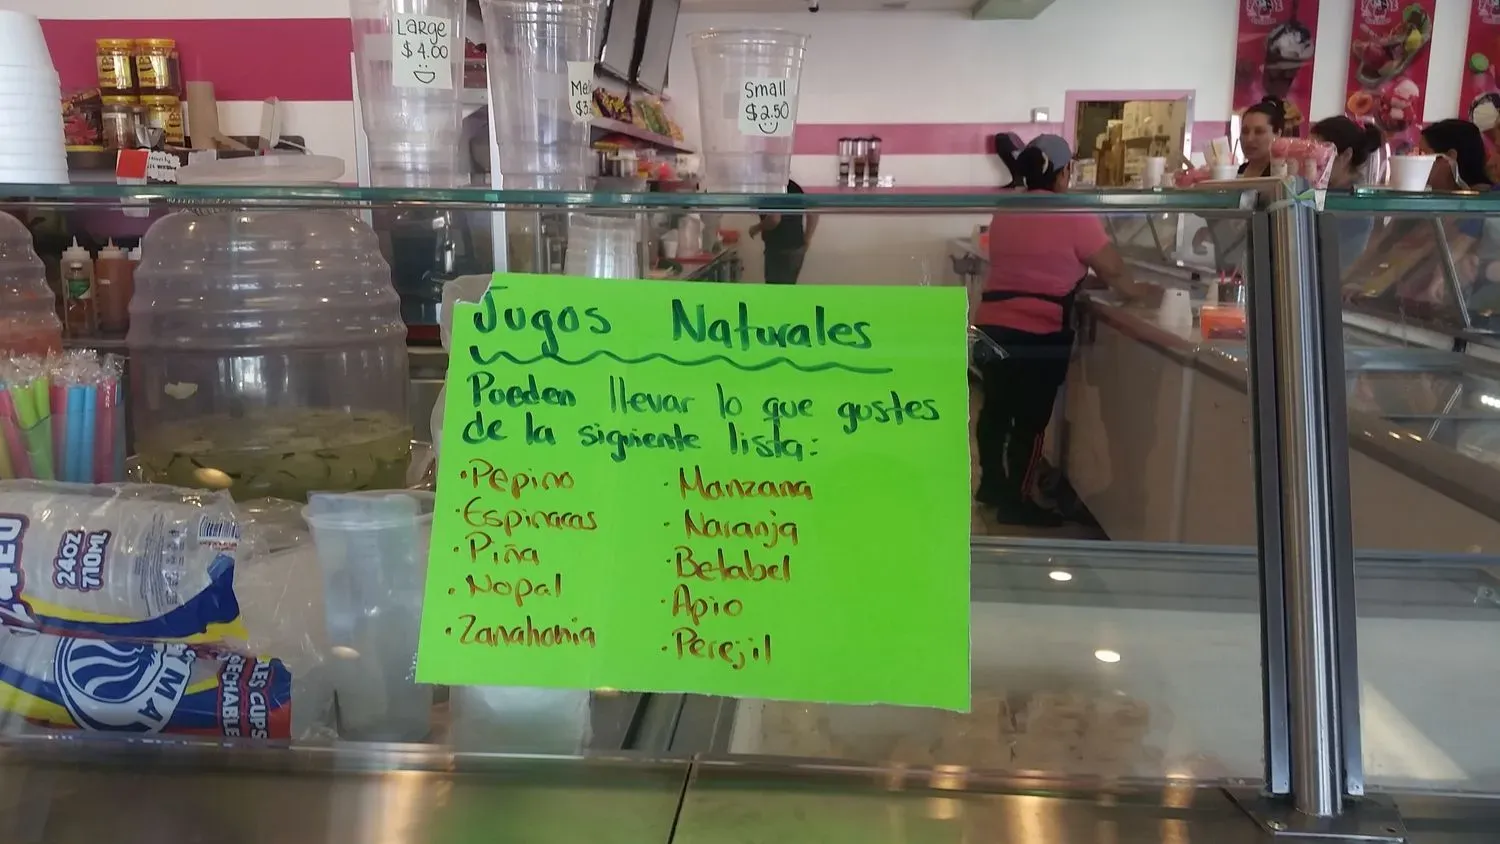 Large
$4.00
Small
$2.50
Jugos Naturales
Pueden llevar lo que gustes
de la siguiente lista:
• Pepino
• Espinacas
• Piña
• Nopal
• Zanahoria
• Manzana
• Naranja
• Betabel
• Apio
• Perejil
24oz
710ML